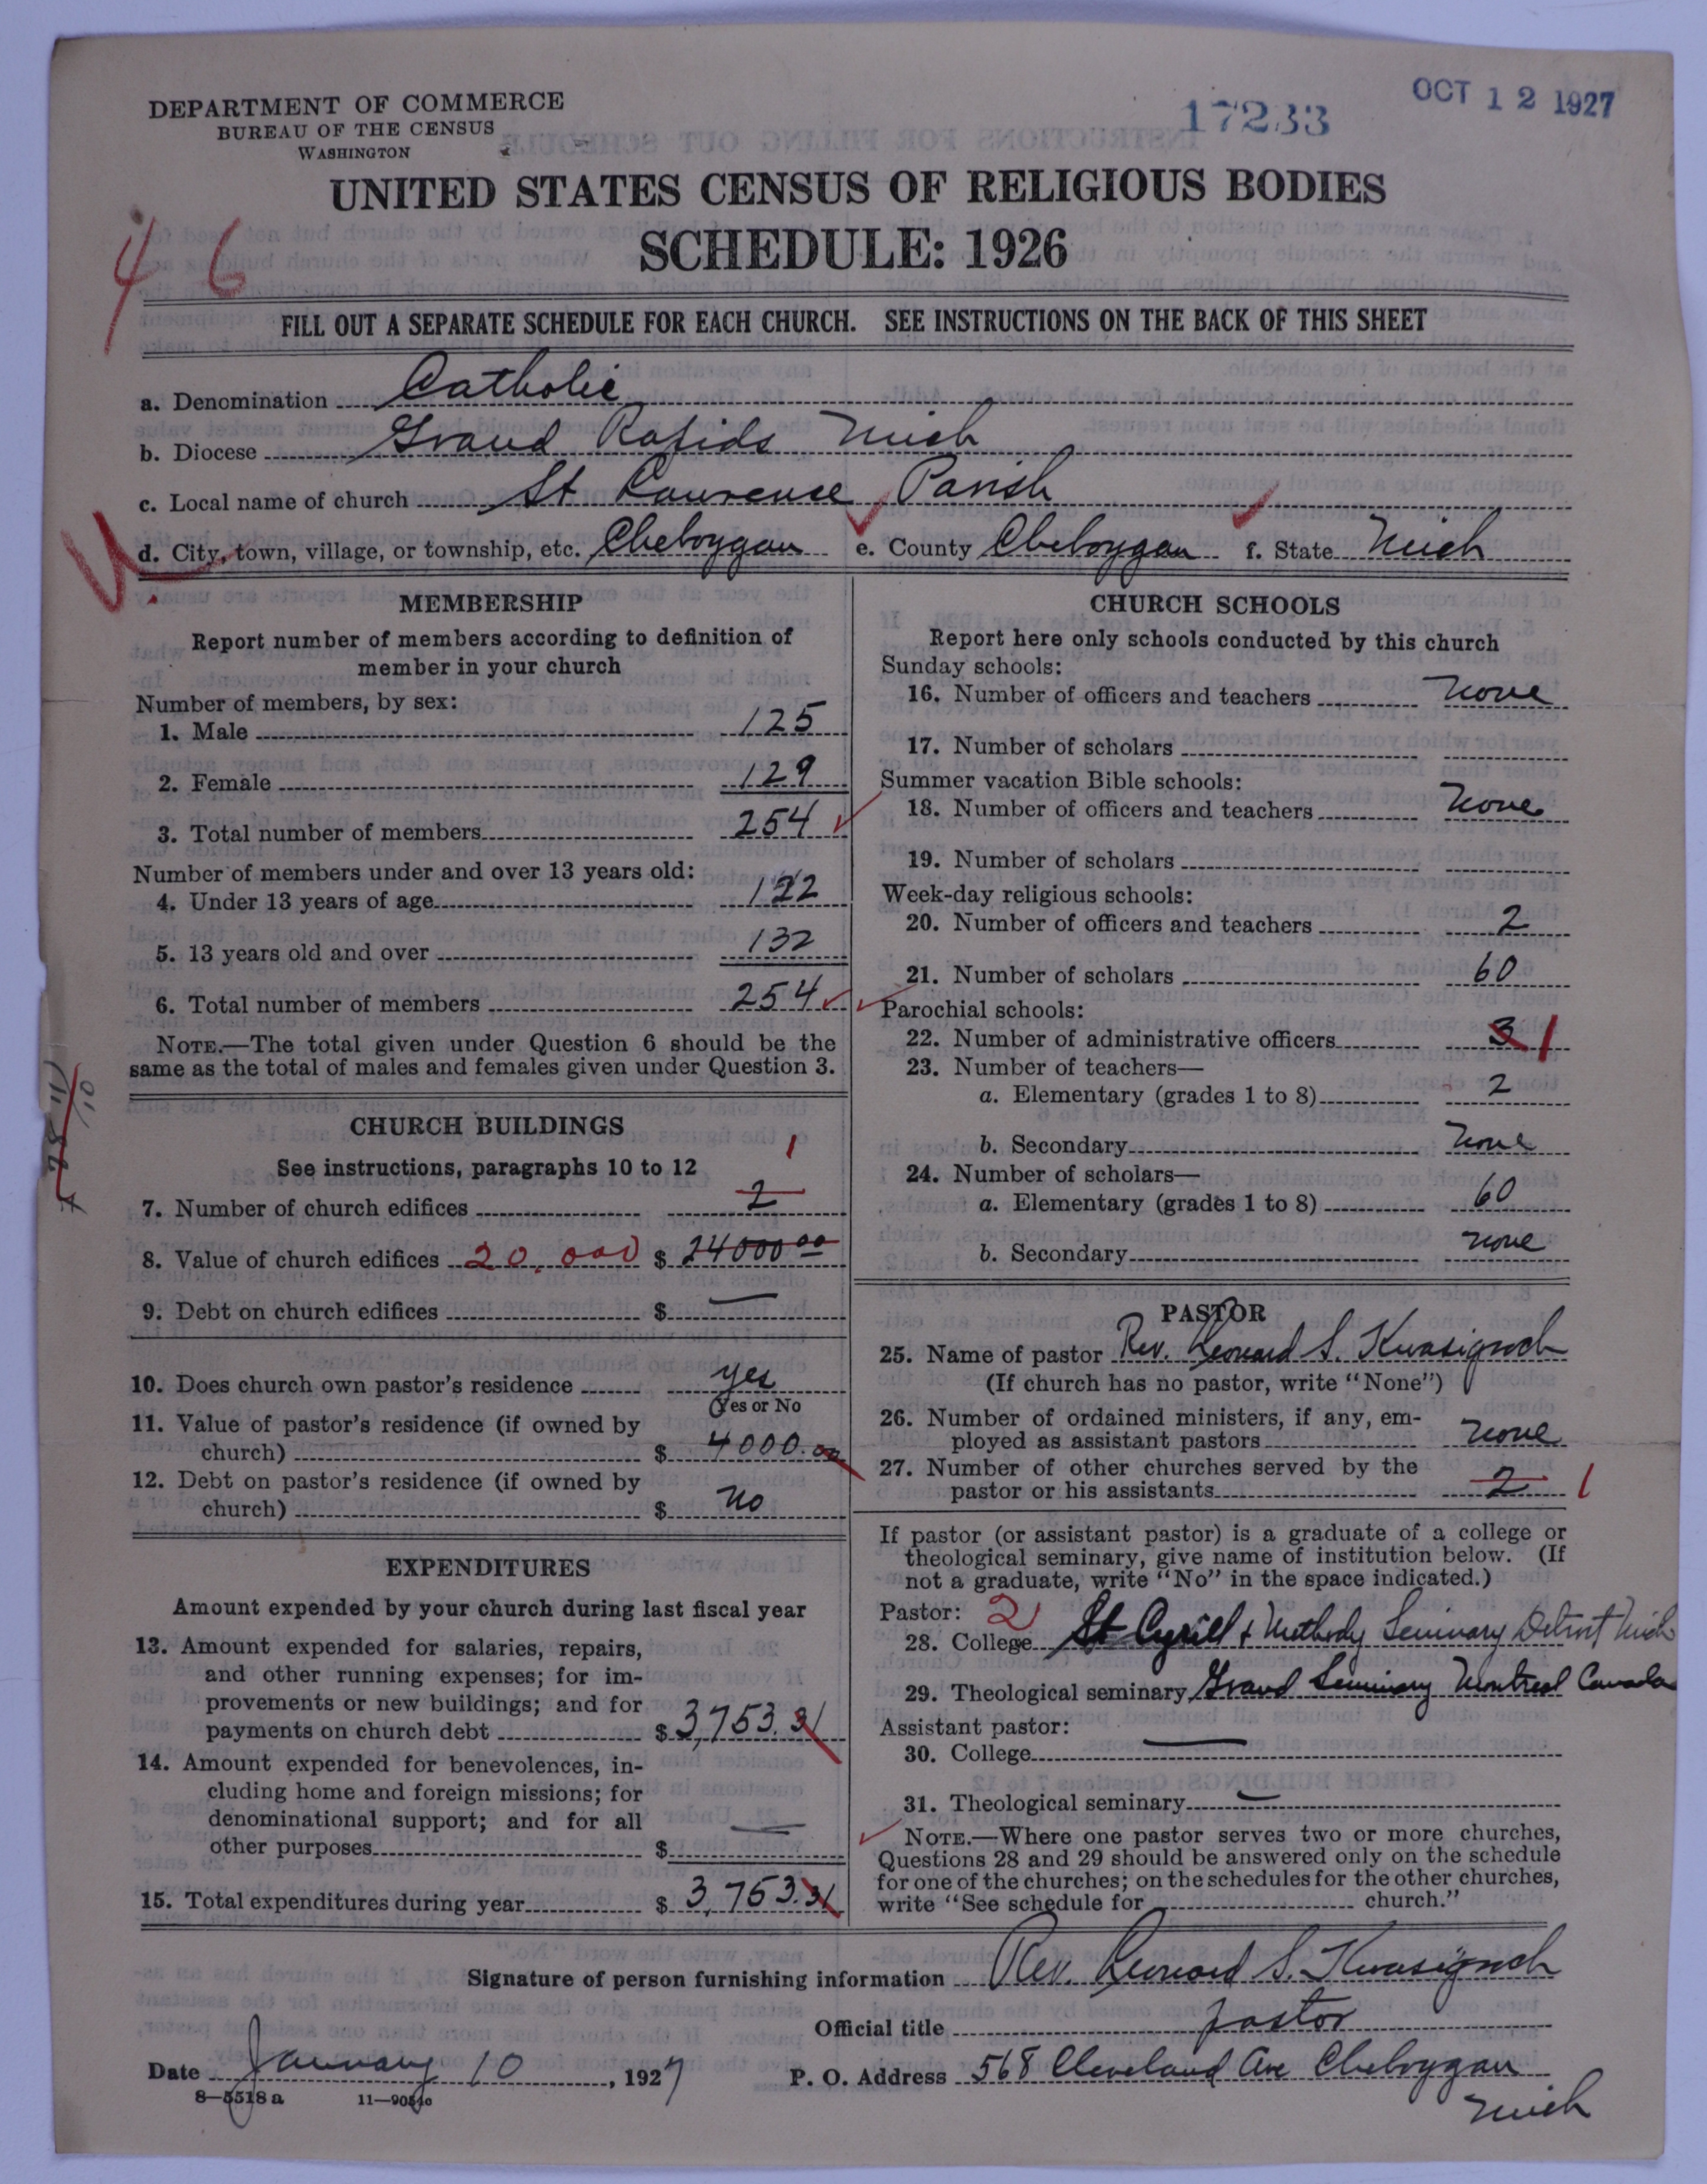 DEPARTMENT OF COMMERCE
BUREAU OF THE CENSUS
WASHINGTON
17233
OCT 12 1927
UNITED STATES CENSUS OF RELIGIOUS BODIES
SCHEDULE: 1926
4 6
FILL OUT A SEPARATE SCHEDULE FOR EACH CHURCH. SEE INSTRUCTIONS ON THE BACK OF THIS SHEET
a. Denomination Catholic
b. Diocese Grand Rapids Mich
c. Local name of church St Lawrence Parish
d. City, town, village, or township, etc. Cheboygan e. County Cheboygan f. State Mich
MEMBERSHIP
Report number of members according to definition of
member in your church
Number of members, by sex:
1. Male 125
2. Female 129
3. Total number of members 254
Number of members under and over 13 years old:
4. Under 13 years of age 122
5. 13 years old and over 132
6. Total number of members 254
NOTE.—The total given under Question 6 should be the
same as the total of males and females given under Question 3.
CHURCH BUILDINGS
See instructions, paragraphs 10 to 12
1
7. Number of church edifices 2
8. Value of church edifices 20,000 $ 24000 00
9. Debt on church edifices $ —
10. Does church own pastor's residence yes
(Yes or No
11. Value of pastor's residence (if owned by
church) $ 4000.00
12. Debt on pastor's residence (if owned by
church) $ no
EXPENDITURES
Amount expended by your church during last fiscal year
13. Amount expended for salaries, repairs,
and other running expenses; for im-
provements or new buildings; and for
payments on church debt $ 3,753.31
14. Amount expended for benevolences, in-
cluding home and foreign missions; for
denominational support; and for all
other purposes $ —
15. Total expenditures during year $ 3,753.31
CHURCH SCHOOLS
Report here only schools conducted by this church
Sunday schools:
16. Number of officers and teachers none
17. Number of scholars
Summer vacation Bible schools:
18. Number of officers and teachers none
19. Number of scholars
Week-day religious schools:
20. Number of officers and teachers 2
21. Number of scholars 60
Parochial schools:
22. Number of administrative officers 3 1
23. Number of teachers—
a. Elementary (grades 1 to 8) 2
b. Secondary none
24. Number of scholars—
a. Elementary (grades 1 to 8) 60
b. Secondary none
PASTOR
25. Name of pastor Rev. Leonard S. Kwasigroch
(If church has no pastor, write "None")
26. Number of ordained ministers, if any, em-
ployed as assistant pastors none
27. Number of other churches served by the
pastor or his assistants 2 1
If pastor (or assistant pastor) is a graduate of a college or
theological seminary, give name of institution below. (If
not a graduate, write "No" in the space indicated.)
Pastor: 2
28. College St Cyrill & Methody Seminary Detroit Mich
29. Theological seminary Grand Seminary Montreal Canada
Assistant pastor:
30. College —
31. Theological seminary —
NOTE.—Where one pastor serves two or more churches,
Questions 28 and 29 should be answered only on the schedule
for one of the churches; on the schedules for the other churches,
write "See schedule for church."
Signature of person furnishing information Rev. Leonard S. Kwasigroch
Official title pastor
Date January 10, 1927 P. O. Address 568 Cleveland Ave Cheboygan
Mich
8—5518 a 11—9054c